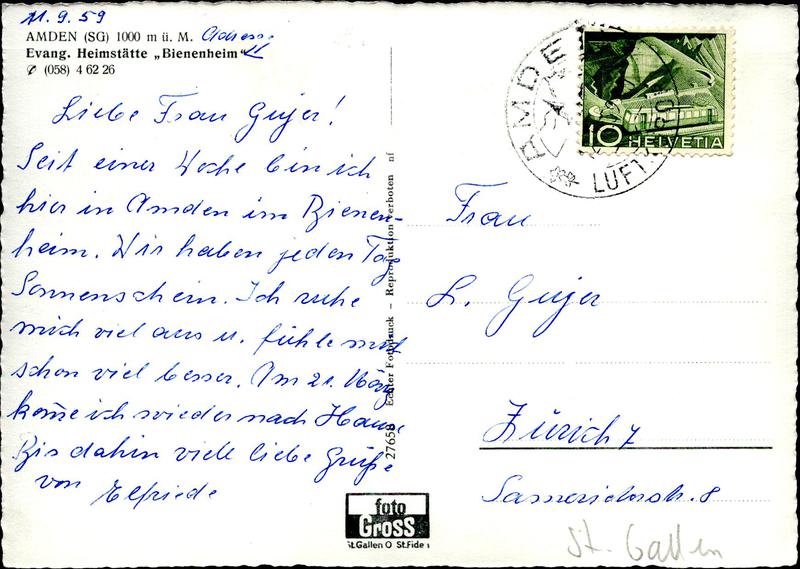 11.9.59
AMDEN (SG) 1000 m ü. M. Adresse
Evang. Heimstätte „Bienenheim"
✆ (058) 4 62 26
Liebe Frau Gujer!
Seit einer Woche bin ich
hier in Amden im Bienen-
heim. Wir haben jeden Tag
Sonnenschein. Ich ruhe
mich viel aus u. fühle mich
schon viel besser. Am 21. März
kom̄e ich wieder nach Hause
Bis dahin viele liebe Grüße
von Elfriede
27658 Echter Fotodruck – Reproduktion verboten nf
AMDEN
LUFT
10 HELVETIA
Frau
L. Gujer
Zürich 7
Samariterstr. 8
St. Gallen
foto
GROSS
St.Gallen O St.Fiden